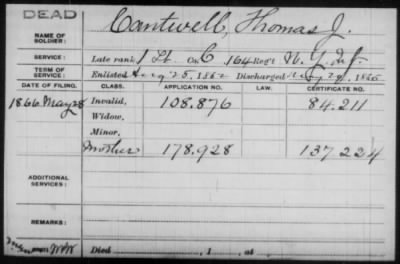 DEAD
NAME OF SOLDIER: Cantwell, Thomas J.
SERVICE: Late rank 1 Lt. Co. C, 164 Reg't N.Y. Inf.
TERM OF SERVICE: Enlisted Aug 25, 1862 Discharged 1865
DATE OF FILING. CLASS. APPLICATION NO. LAW. CERTIFICATE NO.
1866 May 28 Invalid, 108.876 84.211
Widow,
Minor,
Mother 178.928 137224
ADDITIONAL SERVICES:
REMARKS:
Died , 1 , at